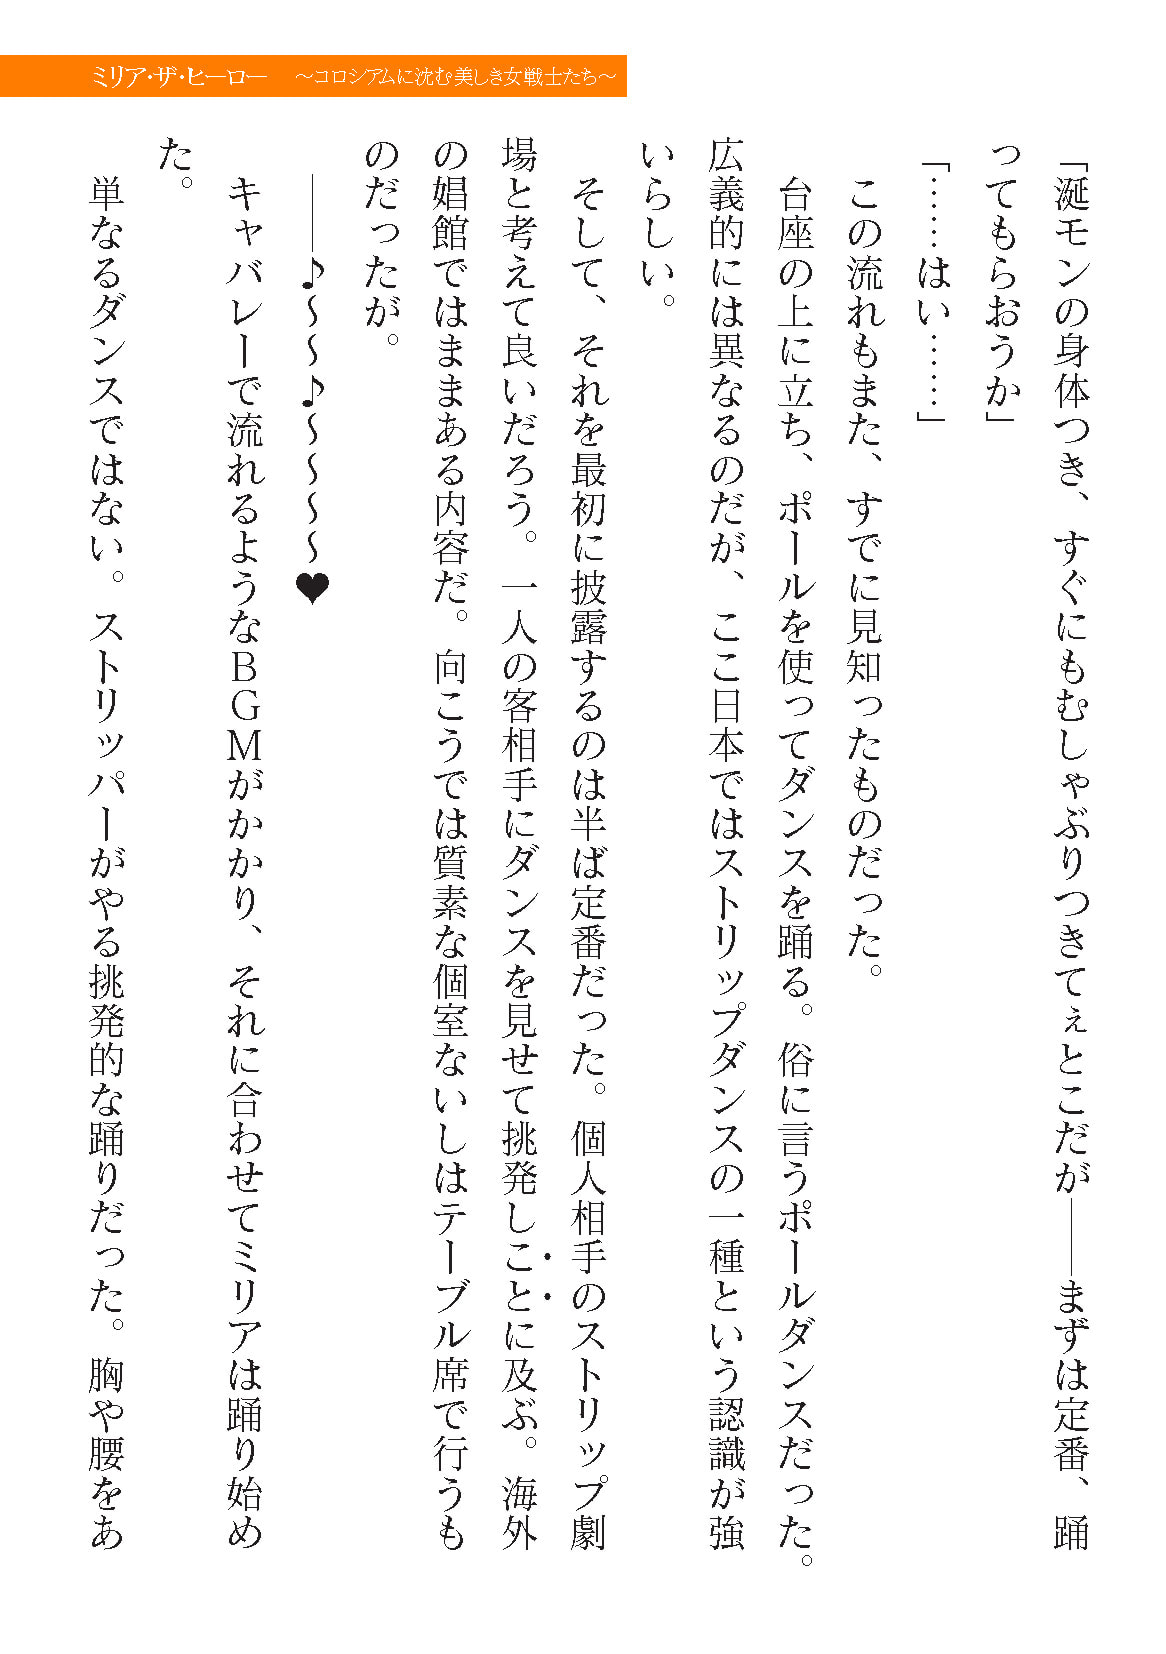 ミリア・ザ・ヒーロー　～コロシアムに沈む美しき女戦士たち～
「涎モンの身体つき、すぐにもむしゃぶりつきてぇとこだが――まずは定番、踊
ってもらおうか」
「……はい……」
　この流れもまた、すでに見知ったものだった。
　台座の上に立ち、ポールを使ってダンスを踊る。俗に言うポールダンスだった。
広義的には異なるのだが、ここ日本ではストリップダンスの一種という認識が強
いらしい。
　そして、それを最初に披露するのは半ば定番だった。個人相手のストリップ劇
場と考えて良いだろう。一人の客相手にダンスを見せて挑発しことに及ぶ。海外
の娼館ではままある内容だ。向こうでは質素な個室ないしはテーブル席で行うも
のだったが。
　――♪～～♪～～～～♥
　キャバレーで流れるようなＢＧＭがかかり、それに合わせてミリアは踊り始め
た。
　単なるダンスではない。ストリッパーがやる挑発的な踊りだった。胸や腰をあ